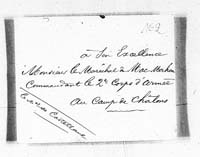 à Son Excellence
Monsieur le Maréchal de Mac Mahon
Commandant le 2e Corps d'armée
au Camp de Châlons